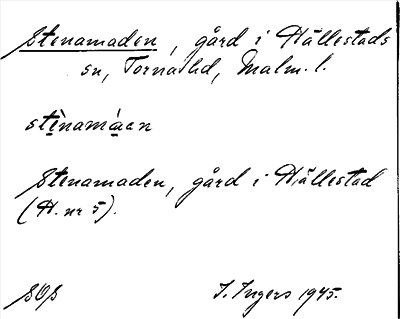 Stenamaden, gård i Hällestads
sn, Torna hd, Malm. l.
stè̱namá̱an
Stenamaden, gård i Hällestad
(H. nr 5).
SOS I. Ingers 1945.